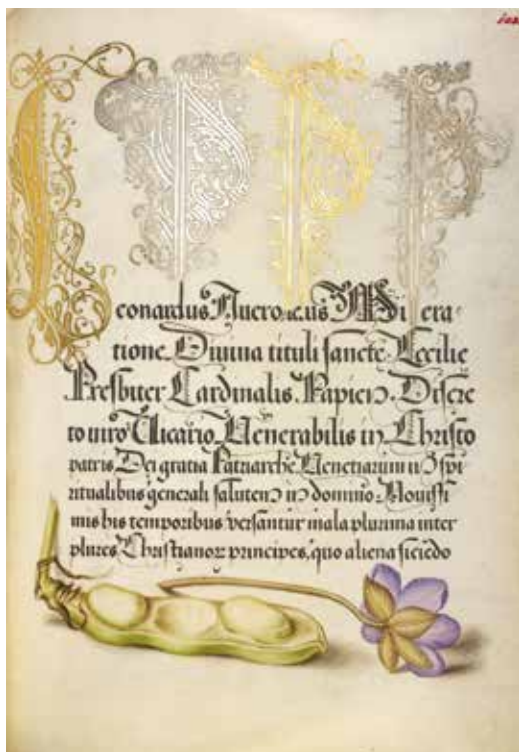 Leonardus Misera-
tione Divina tituli sancte Cecilie
Presbiter Cardinalis. Papien. Discre
to uiro Vicario Venerabilis in Christo
patris Dei gratia Patriarche Venetiarum in spi
ritualibus generali salutem in domino. Nouissi
mis his temporibus versantur mala plurima inter
plures Christianor principes, quo aliena